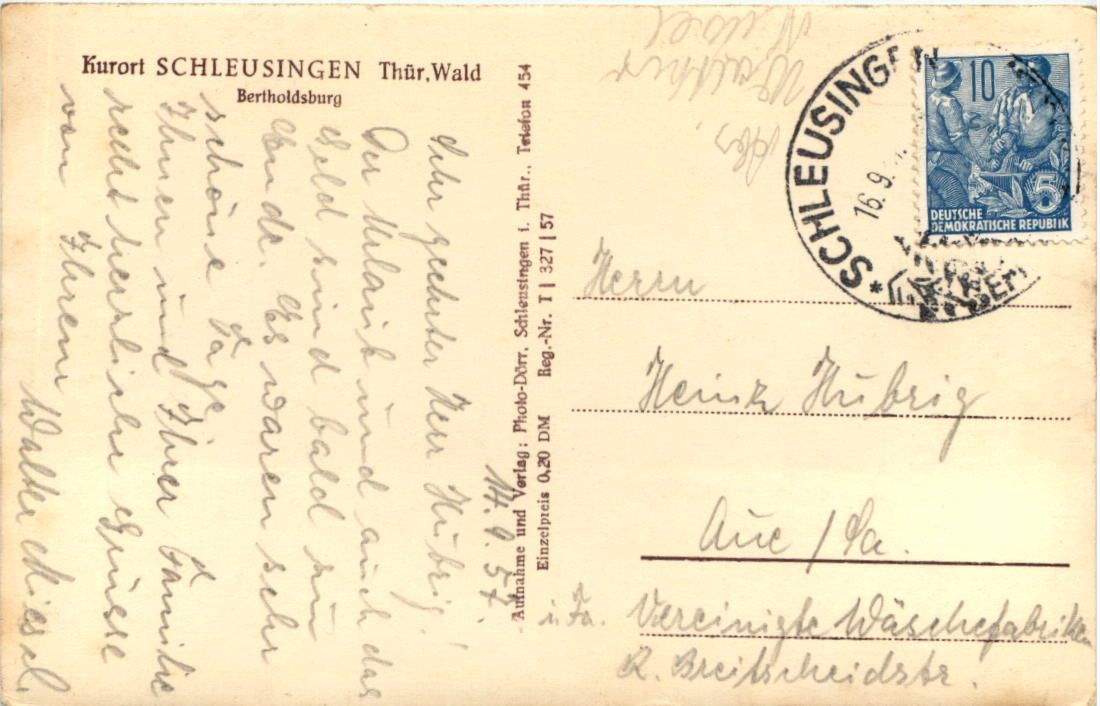 Kurort SCHLEUSINGEN Thür. Wald
Bertholdsburg
14.9.57.
Sehr geehrter Herr Hübrig!
Der Urlaub und auch das
Geld sind bald zu
Ende. Es waren sehr
schöne Tage.
Ihnen und Ihrer Familie
recht herzliche Grüsse
von Ihrem Walter
Aufnahme und Verlag: Photo-Dörr, Schleusingen i. Thür., Telefon 454
Einzelpreis 0,20 DM Reg.-Nr. T | 327 | 57
Abs.
Walther
SCHLEUSINGEN
16.9.
10
5
DEUTSCHE
DEMOKRATISCHE REPUBLIK
Herrn
Heinz Hübrig
Aue / Sa.
i. Fa. Vereinigte Wäschefabriken
R. Breitscheidstr.